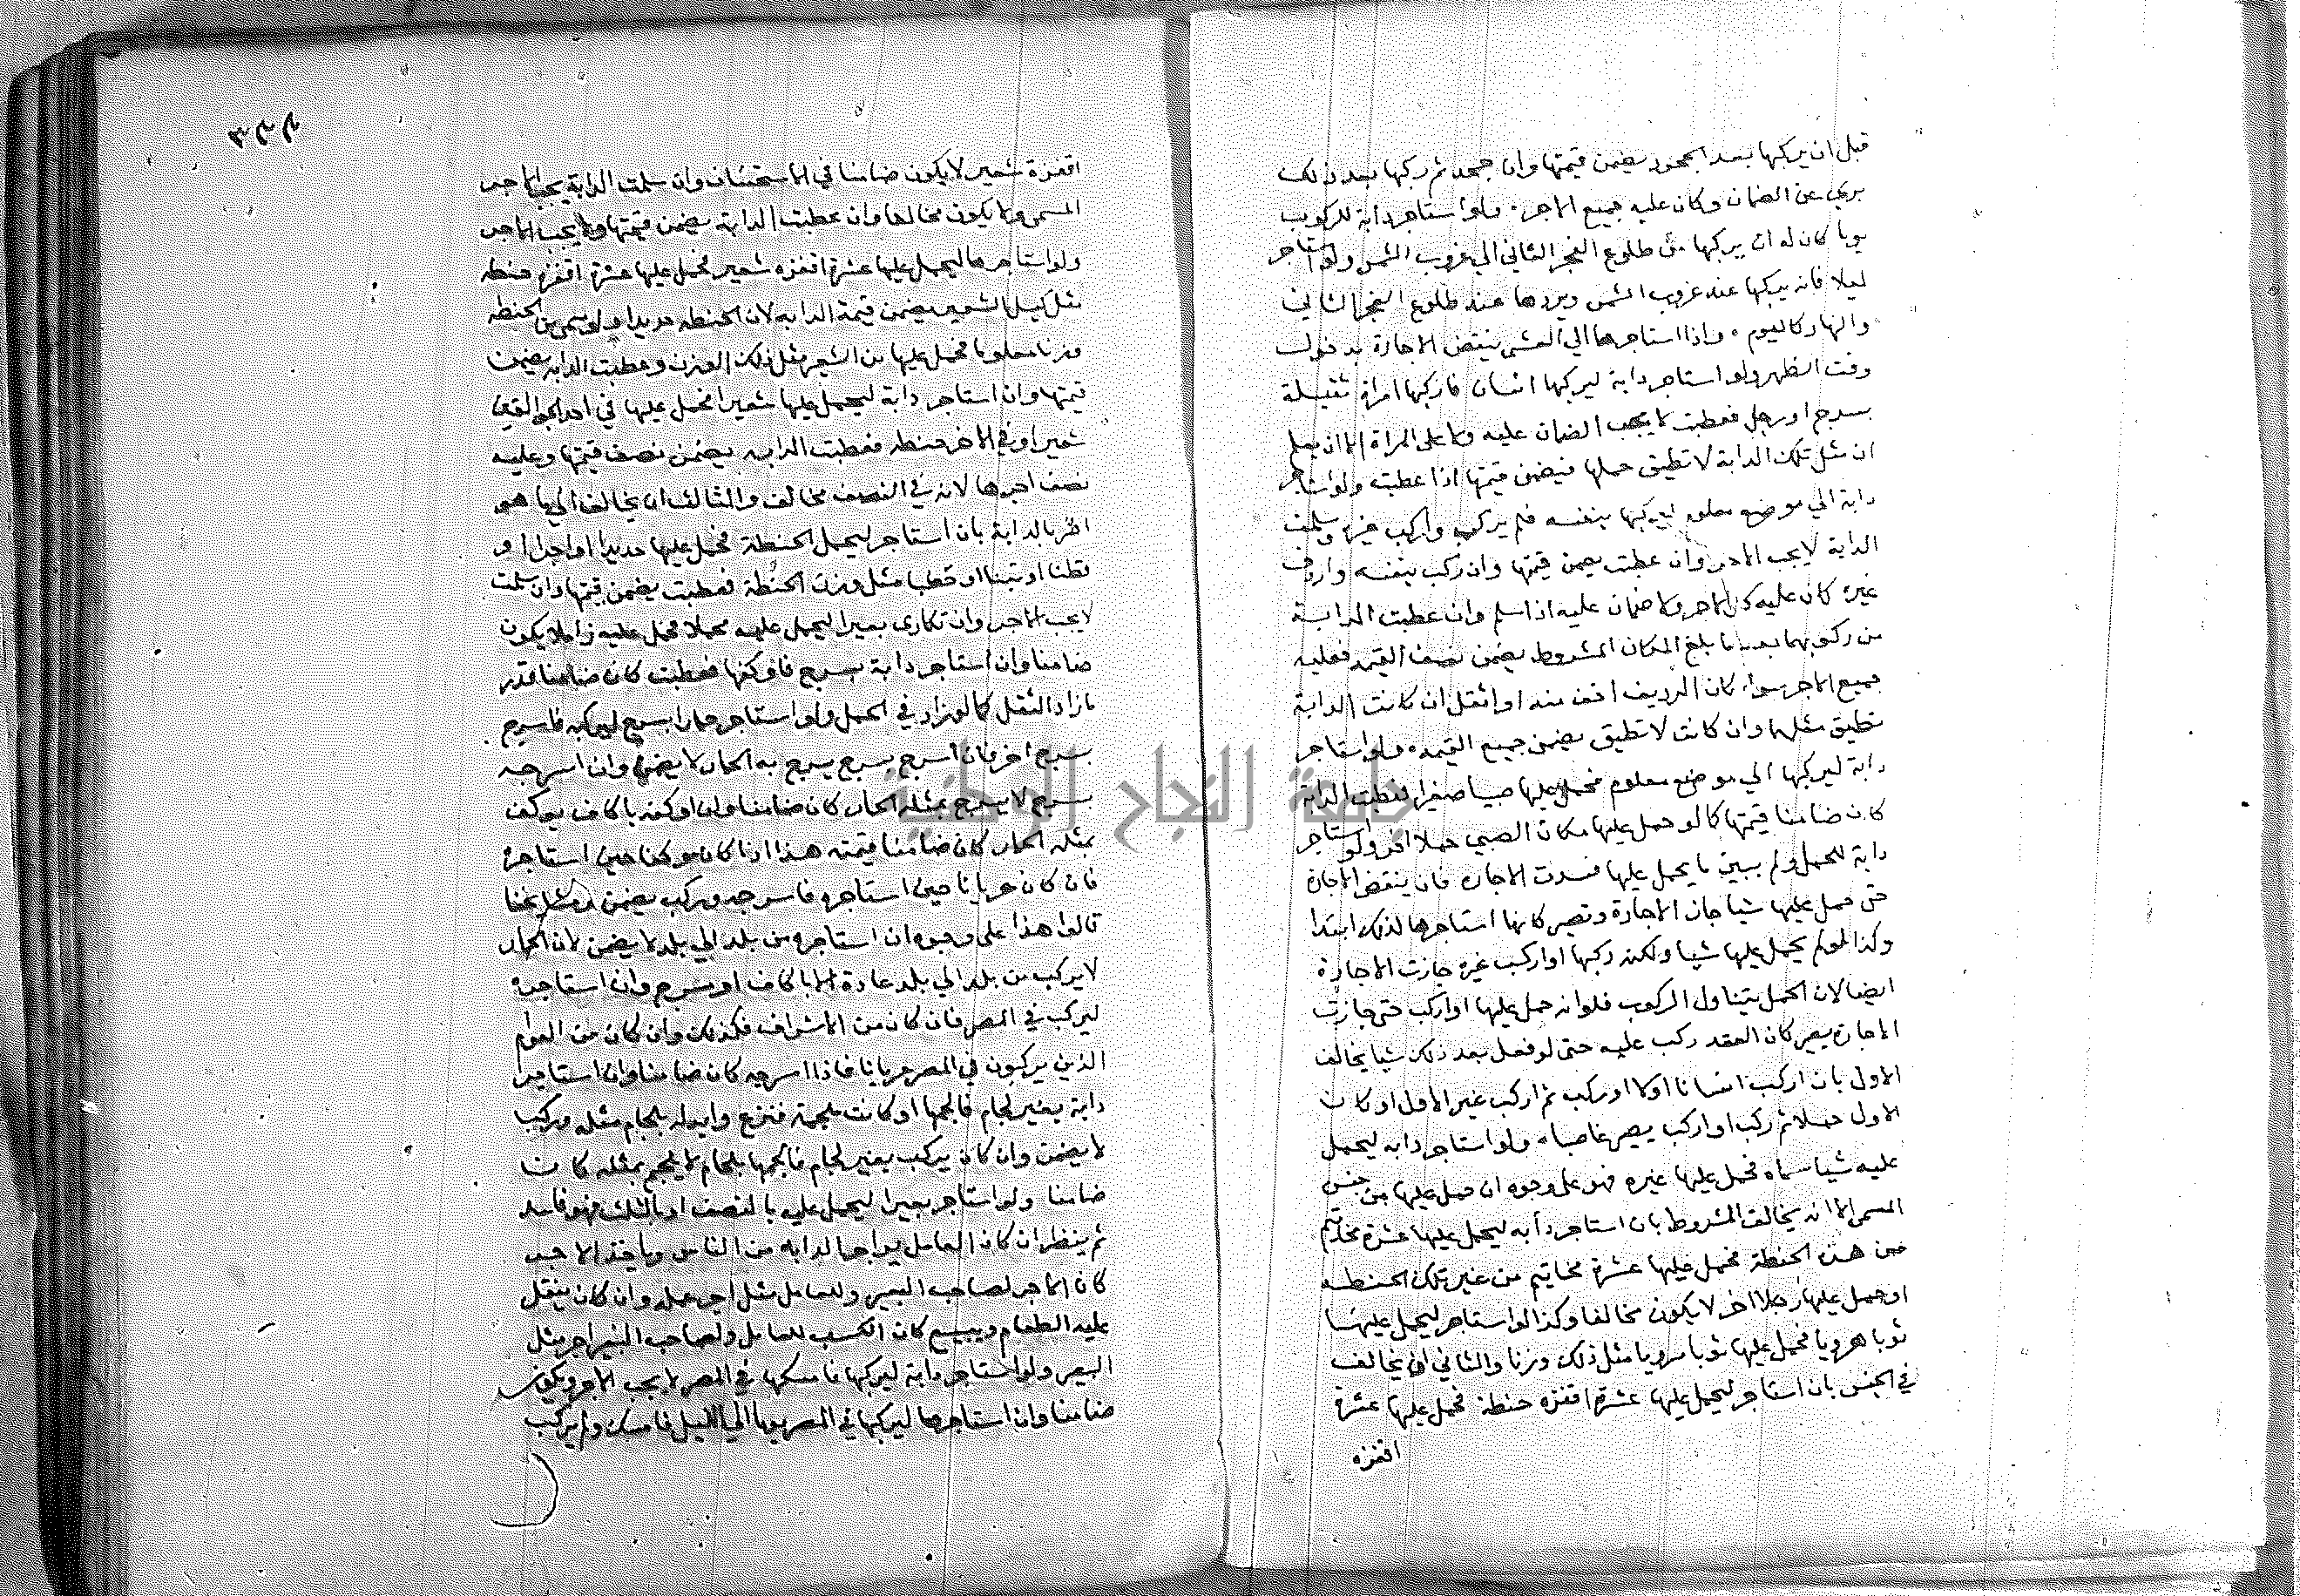 قبل ان يركبها بعد الجحود يضمن قيمتها وان جحد ثم ركبها بعد ذلك
بري عن الضمان وكان عليه جميع الاجر ولو استاجر دابة للركوب
يوما كان له ان يركبها من طلوع الفجر الثاني الي غروب الشمس ولو استاجر
ليلا فانه يركبها عند غروب الشمس ويردها عند طلوع الفجر الثاني
والنهار كاليوم واذا استاجرها الي العشي ينتقض الاجارة بدخول
وقت الظهر ولو استاجر دابة ليركبها انسان فاركبها امراة ثقيلة
بسرج او رجل فعطبت لا يجب الضمان عليه ولا على المراة الا ان يعلم
ان مثل تلك الدابة لا تطيق حملها فيضمن قيمتها اذا عطبت ولو استاجر
دابة الي موضع معلوم ليركبها بنفسه فلم يركب واركب غيره وسلمت
الدابة لا يجب الاجر وان عطبت يضمن قيمتها وان ركب بنفسه واردف
غيره كان عليه كل الاجر ولا ضمان عليه اذا سلم وان عطبت الدابة
من ركوبهما بعد ما بلغ المكان المشروط يضمن نصف القيمة فعليه
جميع الاجر سواء كان الرديف اخف منه او اثقل ان كانت الدابة
تطيق مثلهما وان كانت لا تطيق يضمن جميع القيمة ولو استاجر
دابة ليركبها الي موضع معلوم فحمل عليها صبيا صغيرا فعطبت الدابة
كان ضامنا قيمتها كما لو حمل عليها مكان الصبي حملا اخر ولو استاجر
دابة للحمل ولم يبين ما يحمل عليها فسدت الاجارة فان ينتقض الاجارة
حتى حمل عليها شيا جاز الاجارة وتصير كانها استاجرها لذلك ابتدا
وكذا لو لم يحمل عليها شيا ولكنه ركبها او اركب غيره جازت الاجارة
ايضا لان الحمل يتناول الركوب فلو انه حمل عليها او اركب حتى جازت
الاجارة يصير كان العقد ركب عليه حتى لو فعل بعد ذلك شيا يخالف
الاول بان اركب انسانا اولا او ركب ثم اركب غير الاول او كان
الاول حملا ثم ركب او اركب يصير غاصبا ولو استاجر دابه ليحمل
عليه شيا سماه فحمل عليها غيره فهو على وجوه ان حمل عليها من جنس
المسمى الا انه يخالف المشروط بان استاجر دابه ليحمل عليها عشرة مخاتيم
من هذه الحنطة فحمل عليها عشرة مخاتيم من غير تلك الحنطه
او حمل عليها رجلا اخر لا يكون مخالفا وكذا لو استاجر ليحمل عليها
ثوبا هرويا فحمل عليها ثوبا مرويا مثل ذلك وزنا والثاني ان يخالف
في الجنس بان استاجر ليحمل عليها عشرة اقفزه حنطة فحمل عليها عشرة
اقفزه
٣٣٢
اقفزة شعير لا يكون ضامنا في الاستحسان وان سلمت الدابة يجب الاجر
المسمى ولا يكون مخالفا وان عطبت الدابة يضمن قيمتها ولا يجب الاجر
ولو استاجرها ليحمل عليها عشرة اقفزه شعير فحمل عليها عشرة اقفزه حنطه
مثل كيل الشعير يضمن قيمة الدابه لان الحنطه ولو سمى من الحنطه
وزنا معلوما فحمل عليها من الشعير مثل ذلك الوزن وعطبت الدابه يضمن
قيمتها وان استاجر دابة ليحمل عليها شعيرا فحمل عليها في احد الجوالقين
شعيرا وفي الاخر حنطه فعطبت الدابه يضمن نصف قيمتها وعليه
نصف اجرها لانه في النصف مخالف والثالث ان يخالف الي ما هو
اضر بالدابة بان استاجر ليحمل الحنطة فحمل عليها حديدا او اجرا او
قطنا او تبنا او حطبا مثل وزن الحنطة فعطبت يضمن قيمتها وان سلمت
لا يجب الاجر وان تكارى بعيرا ليحمل عليه محملا فحمل عليه زاملا يكون
ضامنا وان استاجر دابة بسرج فاوكفها فعطبت كان ضامنا قدر
ما زاد الثقل كما لو زاد في الحمل ولو استاجر حمارا بسرج ليركبه فاسرج
بسرج اخر فان اسرج بسرج يسرج به الحمار لا يضمن وان اسرجه
بسرج لا يسرج بمثله الحمار كان ضامنا وان اوكفه باكاف يوكف
بمثله الحمار كان ضامنا قيمته هذا اذا كان موكفا حين استاجره
فان كان عريانا حين استاجره فاسرجه وركب يضمن
قالوا هذا على وجوه ان استاجره من بلد الي بلد لا يضمن لان الحمار
لا يركب من بلد الي بلد عادة الا باكاف او سرج وان استاجره
ليركب في المصر فان كان من الاشراف فكذلك وان كان من العوام
الذين يركبون في المصر عريانا فاذا اسرجه كان ضامنا وان استاجر
دابة بغير لجام فالجمها او كانت ملجمة فنزع وابدله بلجام مثله وركب
لا يضمن وان كان يركب بغير لجام فالجمها بلجام لا يلجم بمثله كان
ضامنا ولو استاجر بعيرا ليحمل عليه بالنصف او بالثلث فهو فاسد
ثم ينظر ان كان العامل يواجر الدابه من الناس وياخذ الاجر
كان الاجر لصاحب البعير وللعامل مثل اجر عمله وان كان ينقل
عليه الطعام ويبيع كان الكسب للعامل ولصاحب البعير اجر مثل
البعير ولو استاجر دابة ليركبها فامسكها في المصر لا يجب الاجر ويكون
ضامنا وان استاجرها ليركبها في المصر يوما الي الليل فامسك ولم يركب
جامعة النجاح الوطنية